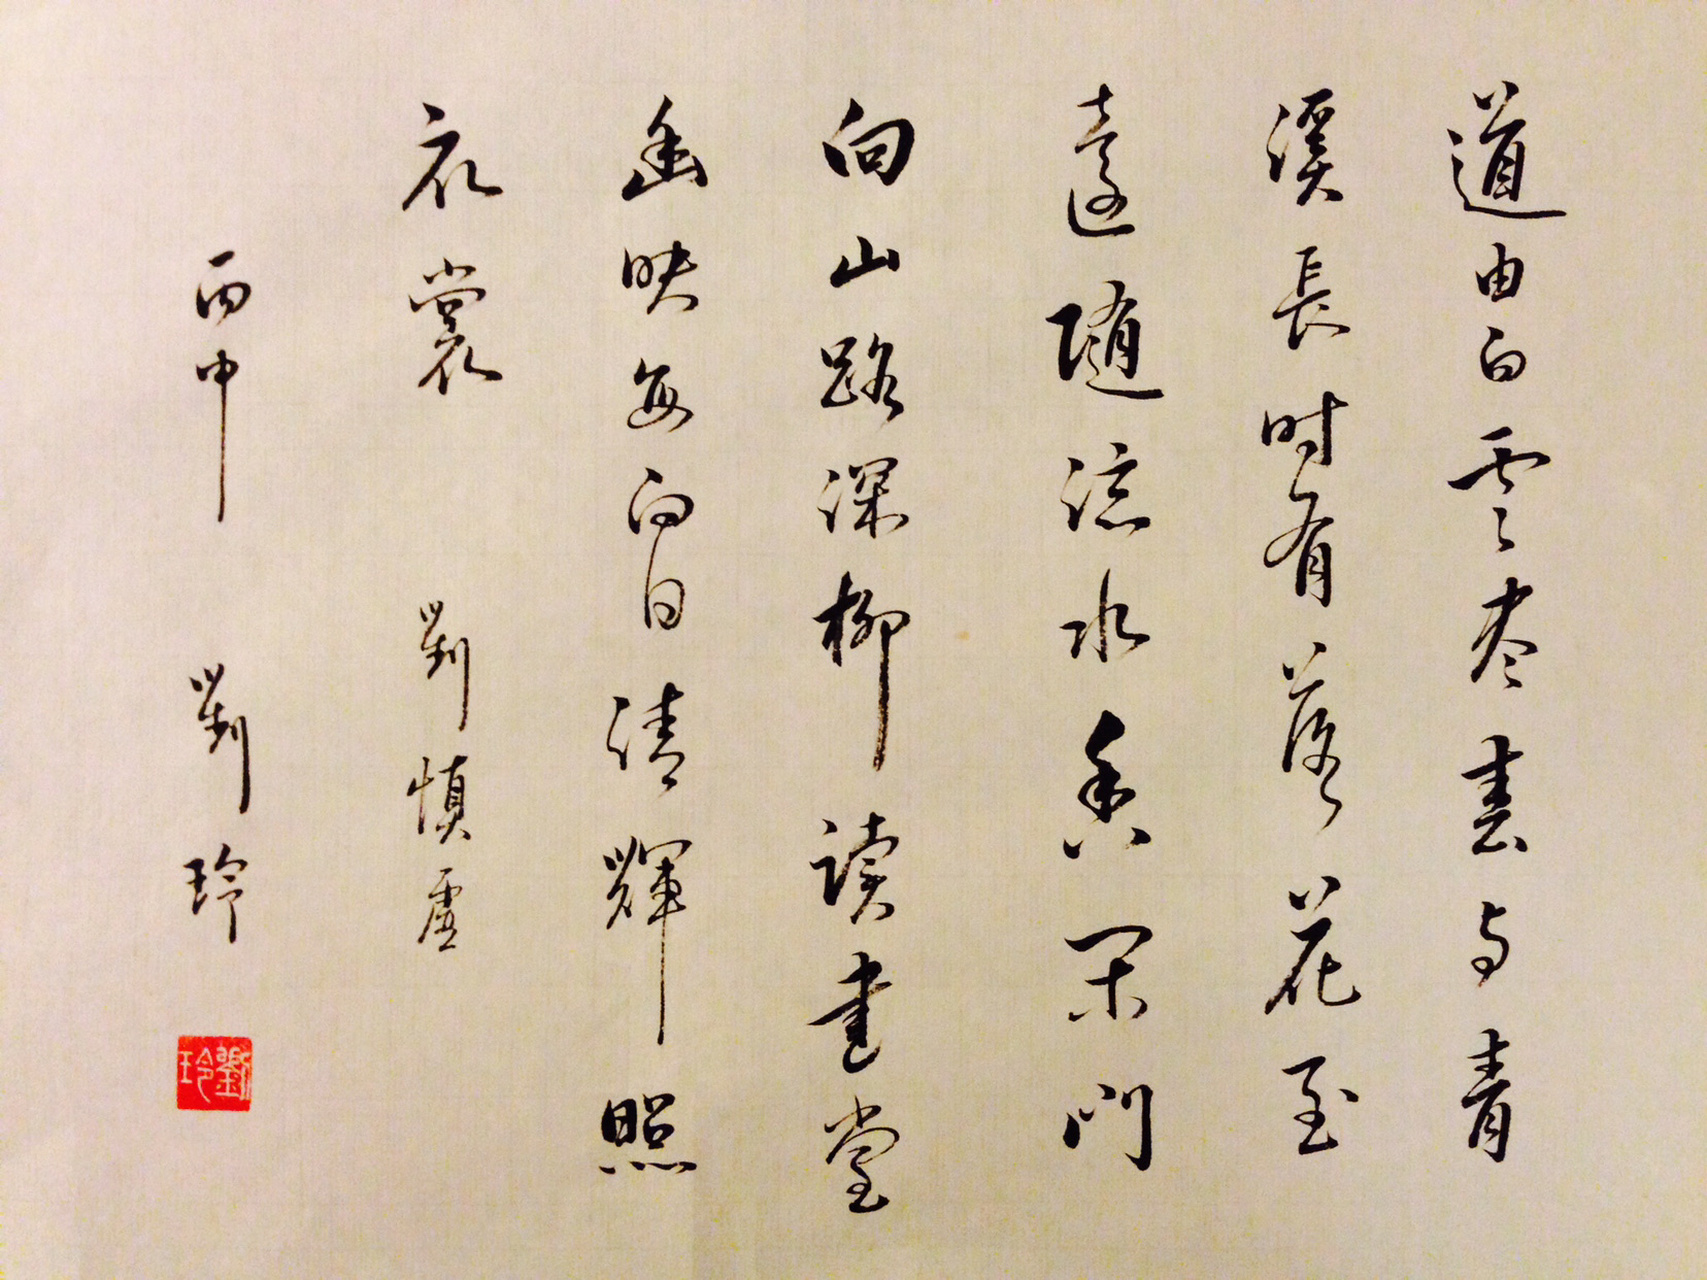 道由白雲尽春与青
溪長时有落花至
遠隨流水香闲門
向山路深柳读書堂
幽映每白日清輝照
衣裳 劉慎虛
丙申 劉玲
劉玲